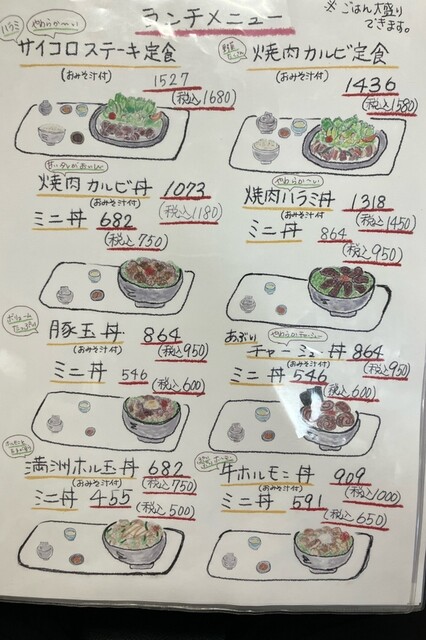 ランチメニュー
※ごはん大盛り
できます。
ハラミ
やわらか〜い
サイコロステーキ定食
(おみそ汁付)
1527
(税込1680)
焼肉カルビ定食
(おみそ汁付)
1436
(税込1580)
焼肉カルビ丼 1073
(おみそ汁付)
(税込1180)
ミニ丼 682
(税込750)
やわらか〜い
焼肉ハラミ丼 1318
(おみそ汁付)
(税込1450)
ミニ丼 864
(税込950)
ボリューム
たっぷり
豚玉丼 864
(おみそ汁付)
(税込950)
ミニ丼 546
(税込600)
あぶり
やわらかチャーシュー
チャーシュー丼 864
(おみそ汁付)
(税込950)
ミニ丼 546
(税込600)
満洲ホル玉丼 682
(おみそ汁付)
(税込750)
ミニ丼 455
(税込500)
牛ホルモン丼 909
(おみそ汁付)
(税込1000)
ミニ丼 591
(税込650)